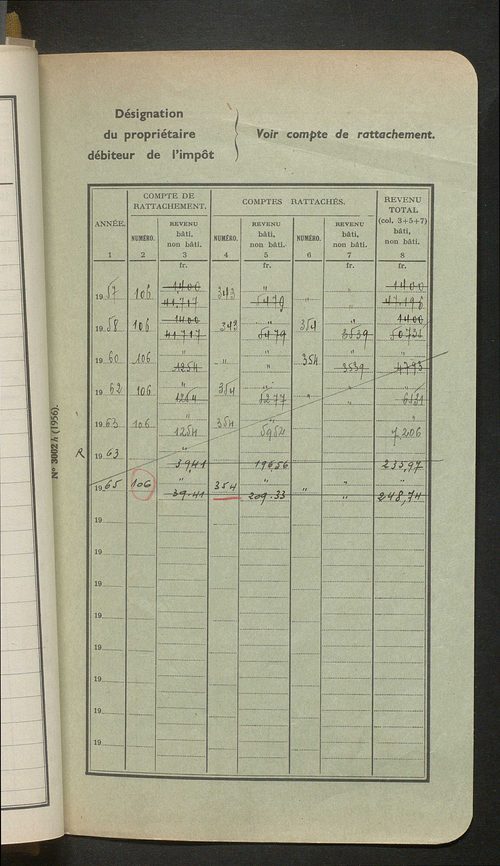 Désignation
du propriétaire
débiteur de l'impôt
Voir compte de rattachement.
ANNÉE. COMPTE DE RATTACHEMENT. COMPTES RATTACHÉS. REVENU TOTAL (col. 3+5+7) bâti, non bâti.
NUMÉRO. REVENU bâti, non bâti. NUMÉRO. REVENU bâti, non bâti. NUMÉRO. REVENU bâti, non bâti.
1 2 3 4 5 6 7 8
fr. fr. fr. fr.
1400 " 1400
1957 106 41.717 343 5479 " " 47.196
1400 " 1400
1958 106 41.717 343 5479 354 3539 50735
" " " "
1960 106 1254 " " 354 3539 4793
" " " "
1962 106 1254 354 " "
" " "
1963 106 1254 354 5952 7206
R 1963 "
39,41 196,56 235,97
" " "
1965 106 39.41 354 209.33 " " 248,74
19
19
19
19
19
19
19
19
N° 3002 h (1956).